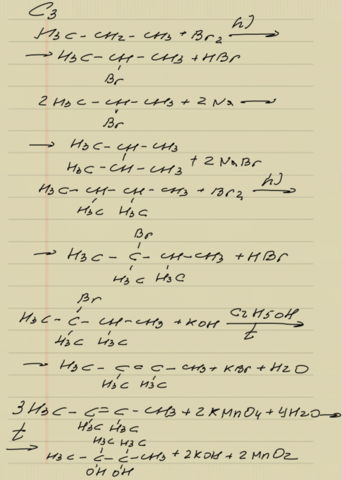 C3
H3C — CH2 — CH3 + Br2 —hν→
→ H3C — CH — CH3 + HBr
Br
2 H3C — CH — CH3 + 2 Na →
Br
→ H3C — CH — CH3
H3C — CH — CH3 + 2 NaBr
H3C — CH — CH — CH3 + Br2 —hν→
H3C H3C
Br
→ H3C — C — CH — CH3 + HBr
H3C H3C
Br
H3C — C — CH — CH3 + KOH C2H5OH →
H3C H3C t
→ H3C — C = C — CH3 + KBr + H2O
H3C H3C
3 H3C — C = C — CH3 + 2 KMnO4 + 4 H2O →
t H3C H3C
H3C H3C
→ H3C — C — C — CH3 + 2 KOH + 2 MnO2
OH OH